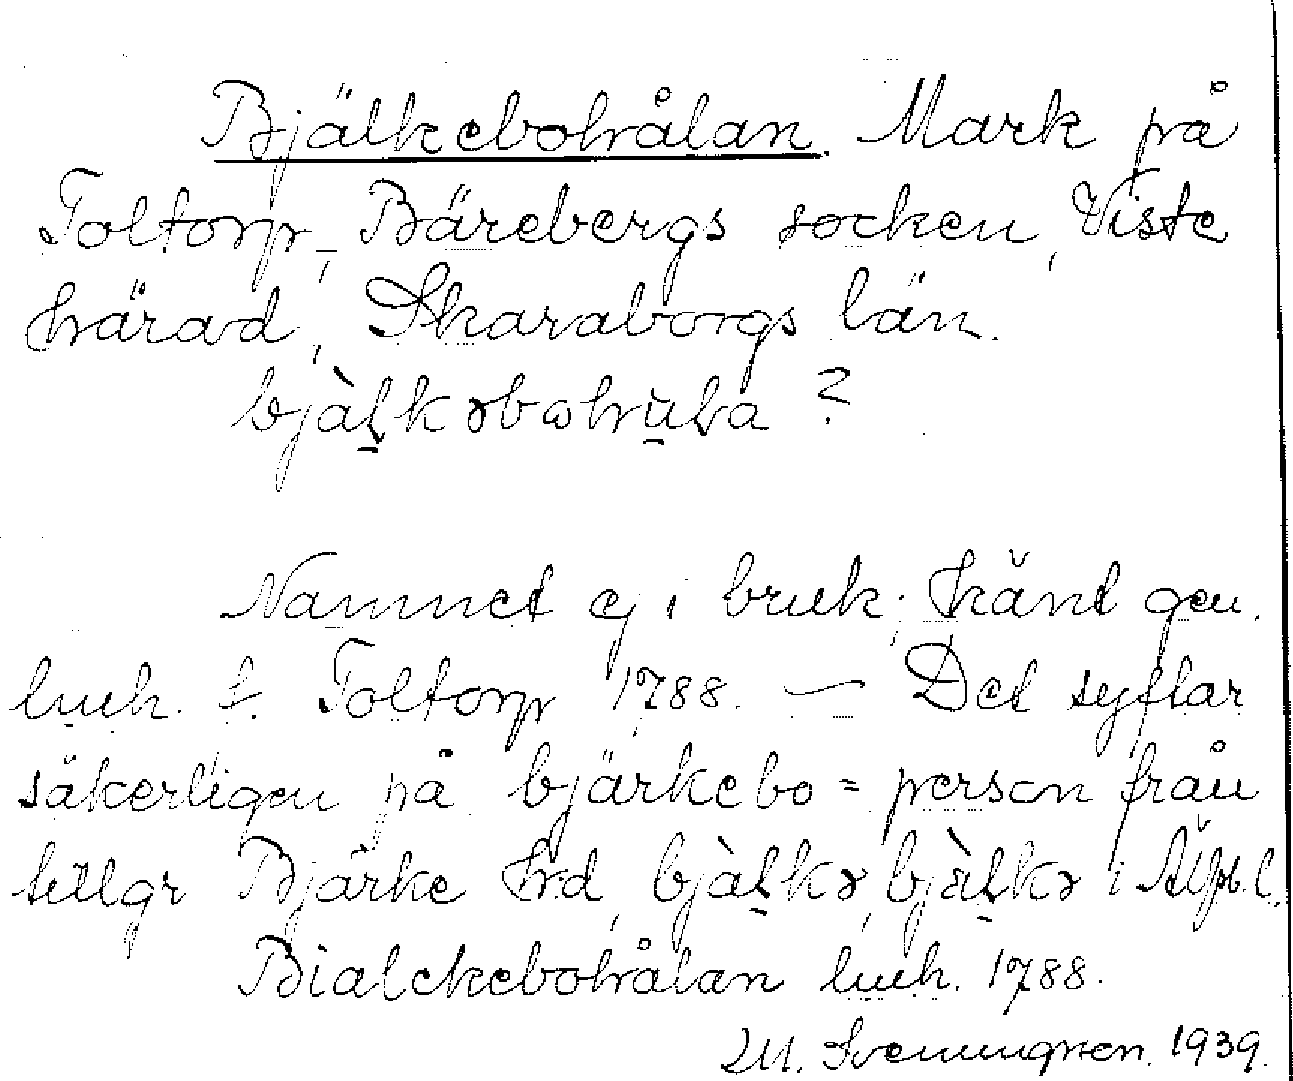 Bjälkebohålan. Mark på
Toltorp, Bärebergs socken, Viste
härad, Skaraborgs län.
bjàl̠kəbohu̠ɫa ?
Namnet ej i bruk; känt gen.
lmh. t. Toltorp 1788. — Det syftar
säkerligen på bjärkebo = person från
Bjärke hd, bjàl̠kə, bjäl̠kə i Älfsb. l.
Bialckebohålan lmh. 1788.
1939.